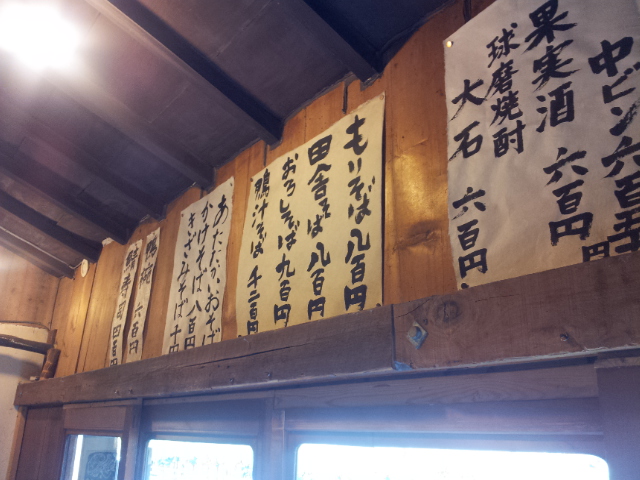 中ビン六百五
円
果実酒 六百円
球磨焼酎
大石 六百円
もりそば 八百円
田舎そば 八百円
おろしそば 九百円
鴨汁そば 千二百円
あたたかいおそば
かけそば 八百円
きざみそば 千円